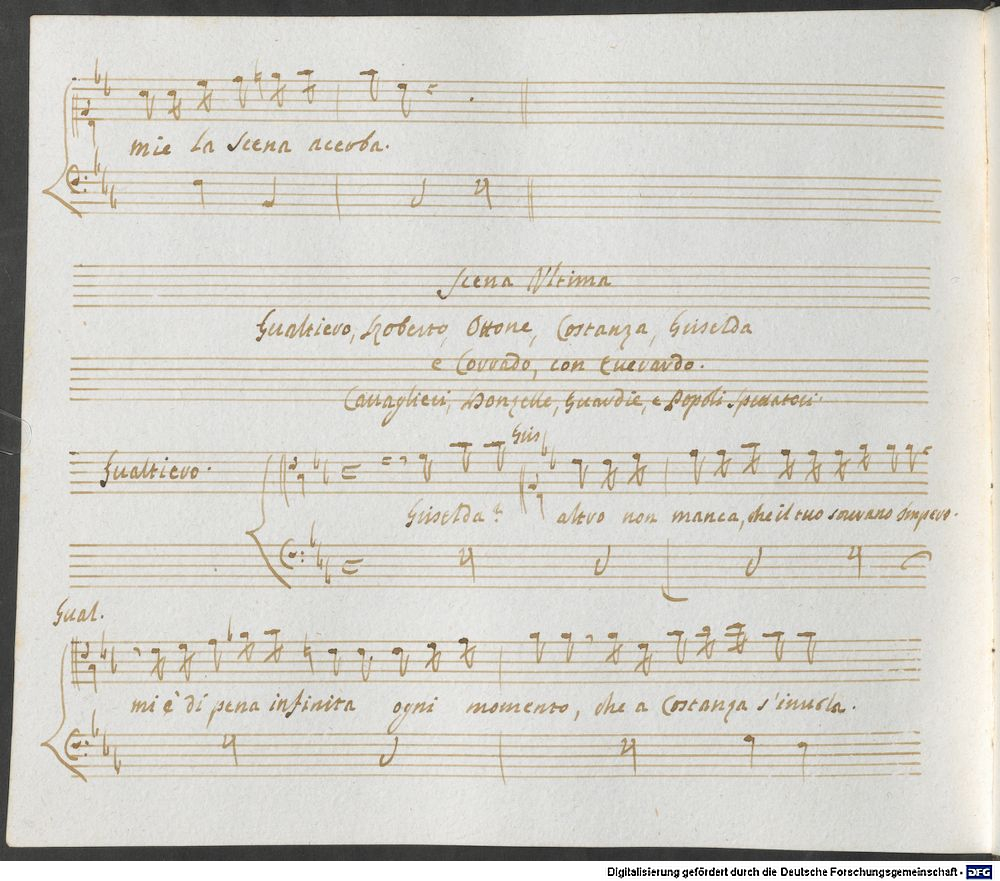 mie la scena acerba.
Scena Vltima
Gualtiero, Roberto, Ottone, Costanza, Griselda
e Corrado, con Everardo.
Cauaglieri, Donzelle, Guardie, e Popoli Spettatori.
Gris.
Gualtiero.
Griselda? altro non manca, che il tuo sourano Impero.
Gual.
mi è di pena infinita ogni momento, che a Costanza s'inuola.
Digitalisierung gefördert durch die Deutsche Forschungsgemeinschaft - DFG